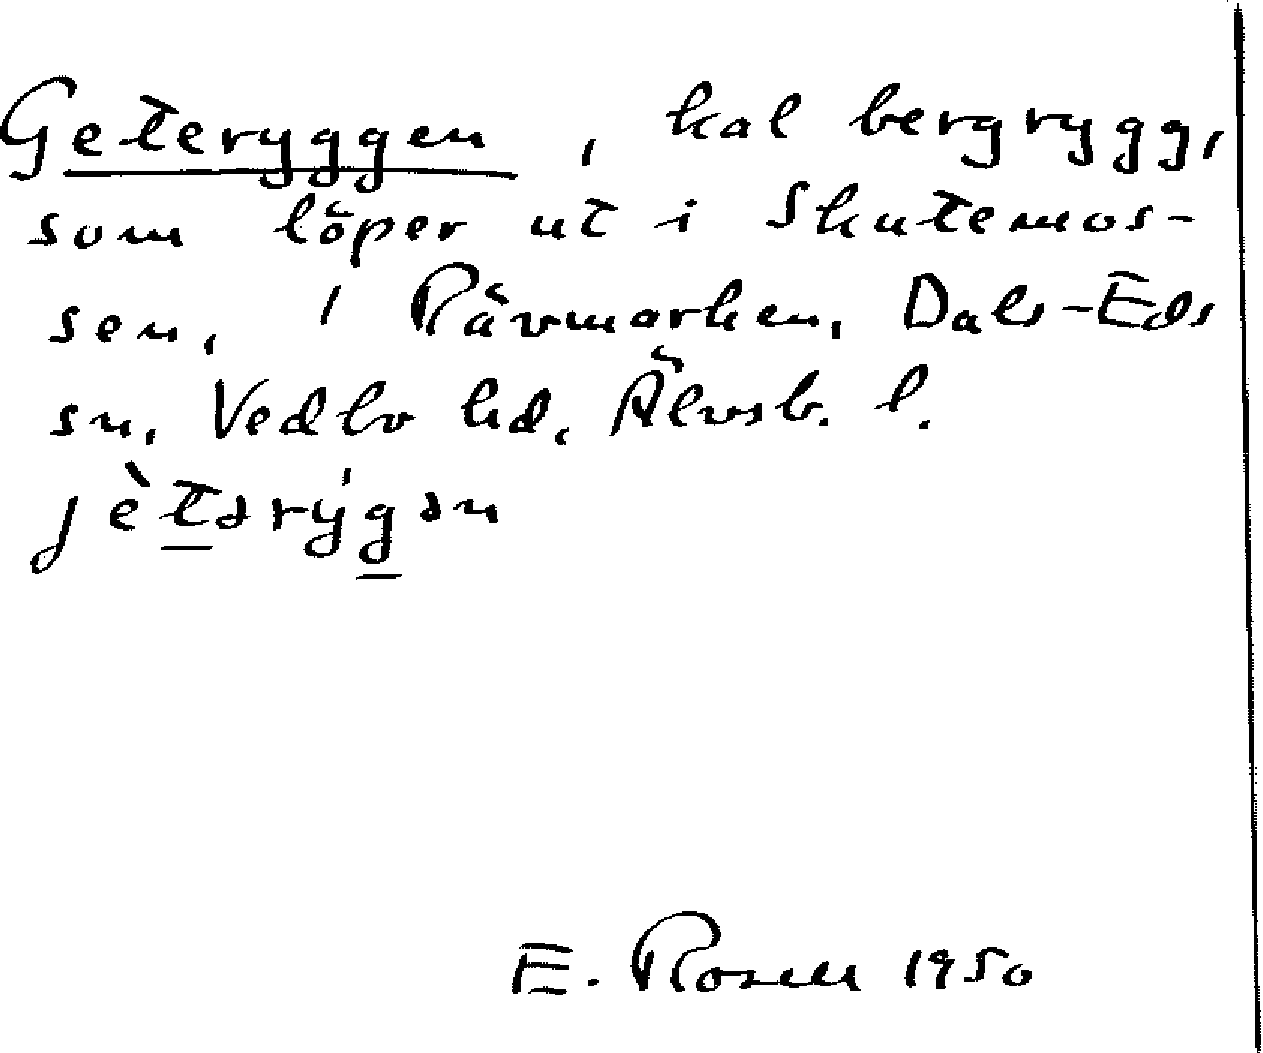 Geteryggen, kal bergrygg,
som löper ut i Skutemos-
sen, i Rävmarken, Dals-Eds
sn, Vedbo hd, Älvsb. l.
jètərýgən
E. Rosell 1950